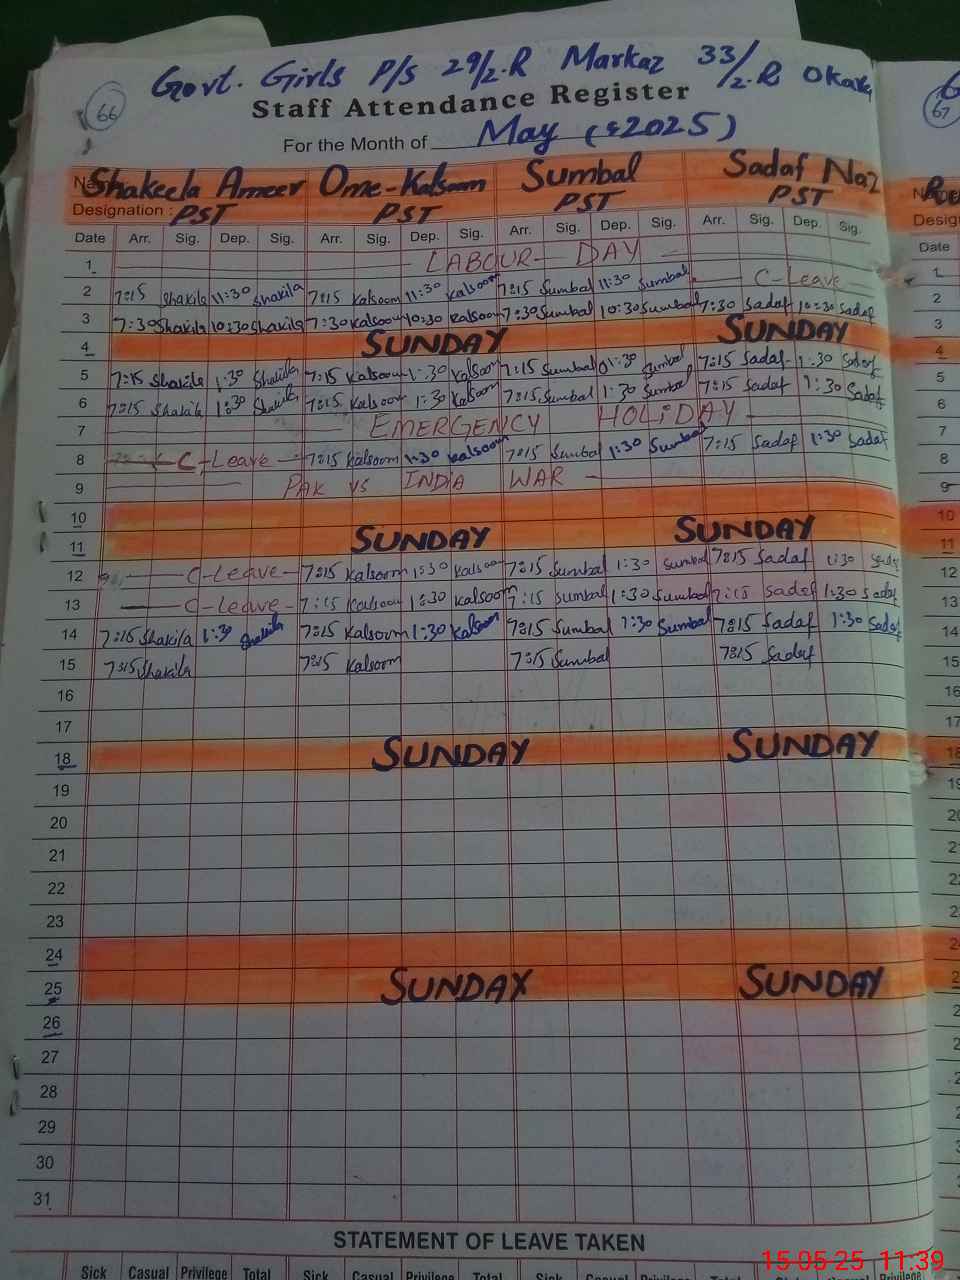 Govt. Girls P/S 29/2-R Markaz 33/2-R Okara
66
Staff Attendance Register
67
For the Month of May (2025)
Shakeela Ameer Ome-Kalsoom Sumbal Sadaf Naz
Designation : PST PST PST PST
Date Arr. Sig. Dep. Sig. Arr. Sig. Dep. Sig. Arr. Sig. Dep. Sig. Arr. Sig. Dep. Sig. Date
1 LABOUR DAY 1
2 7:15 Shakila 11:30 Shakila 7:15 Kalsoom 11:30 Kalsoom 7:15 Sumbal 11:30 Sumbal C-Leave 2
3 7:30 Shakila 10:30 Shakila 7:30 Kalsoom 10:30 Kalsoom 7:30 Sumbal 10:30 Sumbal 7:30 Sadaf 10:30 Sadaf 3
4 SUNDAY SUNDAY 4
5 7:15 Shakila 1:30 Shakila 7:15 Kalsoom 1:30 Kalsoom 7:15 Sumbal 1:30 Sumbal 7:15 Sadaf 1:30 Sadaf 5
6 7:15 Shakila 1:30 Shakila 7:15 Kalsoom 1:30 Kalsoom 7:15 Sumbal 1:30 Sumbal 7:15 Sadaf 1:30 Sadaf 6
7 EMERGENCY HOLIDAY 7
8 C-Leave 7:15 Kalsoom 1:30 Kalsoom 7:15 Sumbal 1:30 Sumbal 7:15 Sadaf 1:30 Sadaf 8
9 PAK VS INDIA WAR 9
10 10
11 SUNDAY SUNDAY 11
12 C-Leave 7:15 Kalsoom 1:30 Kalsoom 7:15 Sumbal 1:30 Sumbal 7:15 Sadaf 1:30 Sadaf 12
13 C-Leave 7:15 Kalsoom 1:30 Kalsoom 7:15 Sumbal 1:30 Sumbal 7:15 Sadaf 1:30 Sadaf 13
14 7:15 Shakila 1:30 Shakila 7:15 Kalsoom 1:30 Kalsoom 7:15 Sumbal 1:30 Sumbal 7:15 Sadaf 1:30 Sadaf 14
15 7:15 Shakila 7:15 Kalsoom 7:15 Sumbal 7:15 Sadaf 15
16 16
17 17
18 SUNDAY SUNDAY 18
19
20
21
22
23
24
25 SUNDAY SUNDAY
26
27
28
29
30
31
STATEMENT OF LEAVE TAKEN
Sick Casual Privilege Total Sick Casual Privilege Total Sick Casual Privilege Total Privilege
15 05 25 11:39